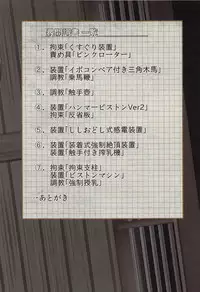 1、拘束「くすぐり装置」
責め具「ピンクローター」
2、装置「イボコンベア付き三角木馬」
調教「乗馬鞭」
3、調教「触手壺」
4、装置「ハンマーピストンVer2」
拘束「反省板」
5、装置「ししおどし式感電装置」
6、装置「装着式強制絶頂装置」
装置「触手付き搾乳機」
7、拘束「拘束支柱」
装置「ピストンマシン」
調教「強制授乳」
・あとがき